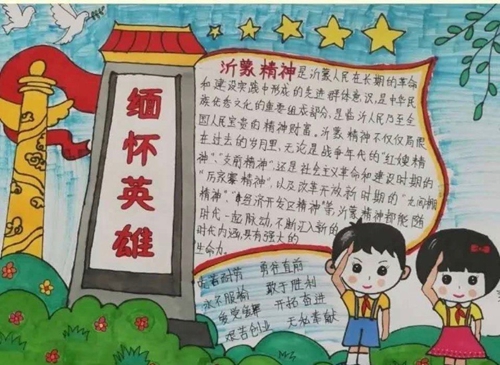 缅怀英雄
沂蒙精神是沂蒙人民在长期的革命
和建设实践中形成的先进群体意识,是中华民
族优秀文化的重要组成部分,是临沂人民乃至全
国人民宝贵的精神财富。沂蒙精神不仅仅局限
在过去的岁月里,无论是战争年代的"红嫂精
神"、"支前精神",还是社会主义革命和建设时期的
"厉家寨精神",以及改革开放新时期的"九间棚
精神"、"经济开发区精神"等,沂蒙精神都能随
时代一起脉动,不断汇入新的
时代内涵,具有强大的
生命力。
吃苦耐劳 勇往直前
永不服输 敢于胜利
爱党爱军 开拓奋进
艰苦创业 无私奉献